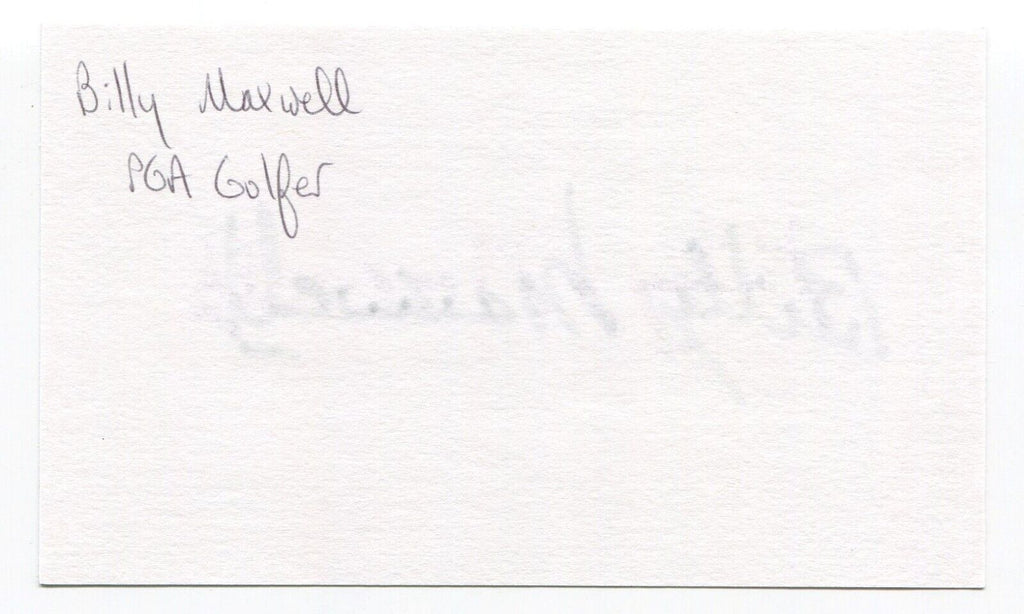 Billy Maxwell
PGA Golfer